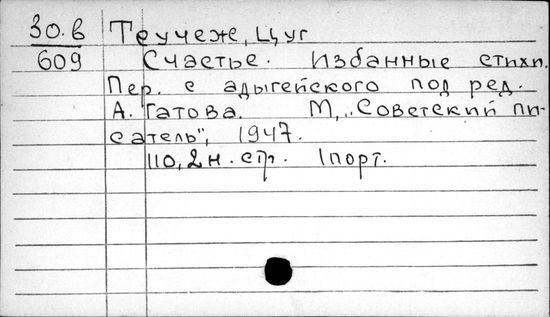 30.в Теучеже, Цуг
609 Счастье. Избанные стихи.
Пер. с адыгейского под ред.
А. Гатова. М, „Советский пи-
сатель", 1947.
110, 2 н. стр. 1 порт.